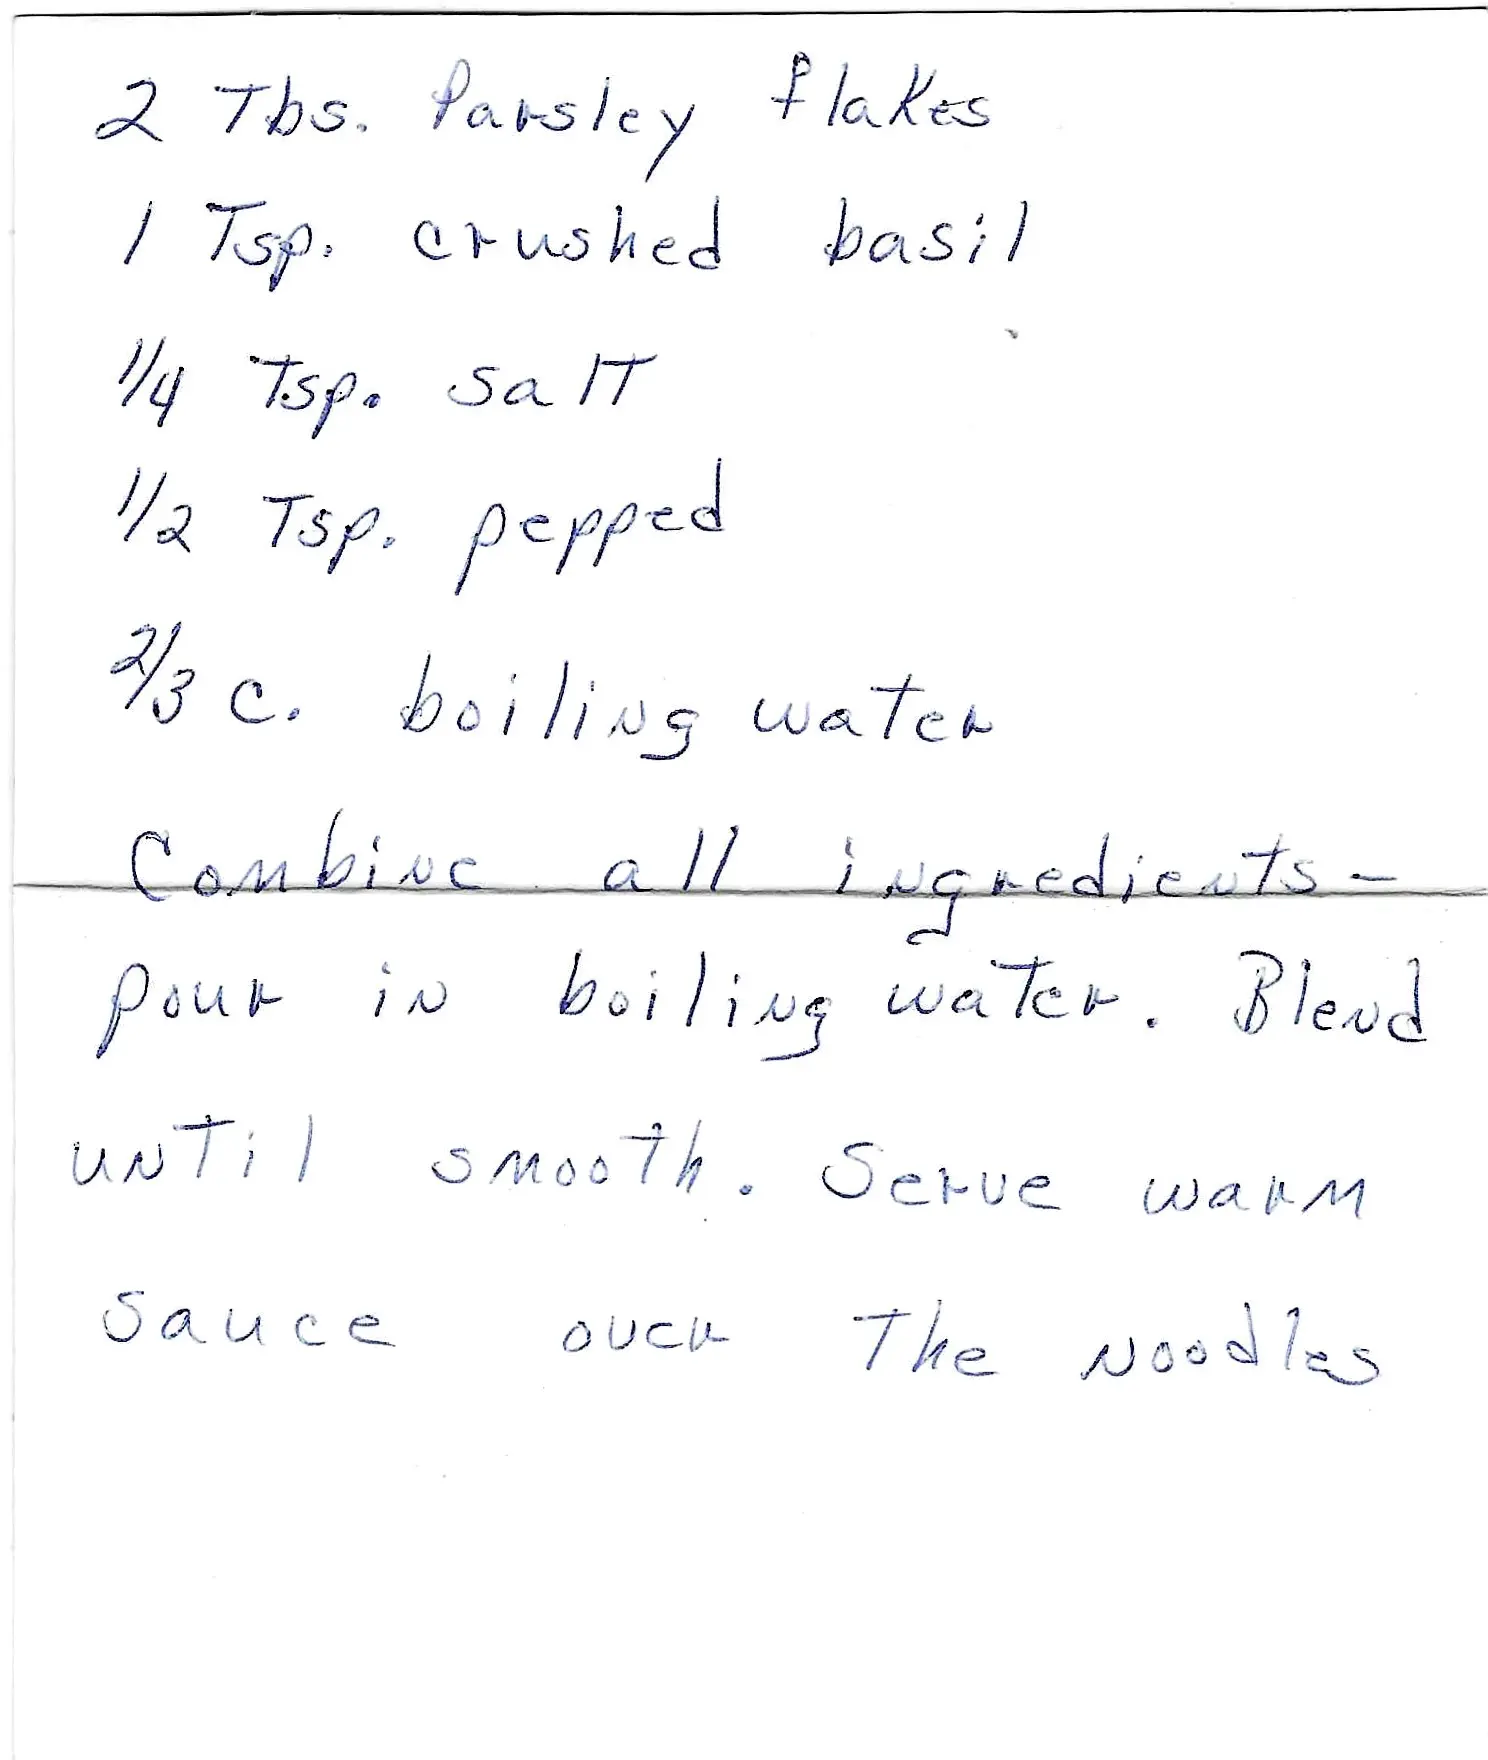 2 Tbs. Parsley flakes
1 Tsp. crushed basil
1/4 Tsp. salt
1/2 Tsp. pepped
2/3 c. boiling water
Combine all ingredients -
pour in boiling water. Blend
until smooth. Serve warm
sauce over The noodles